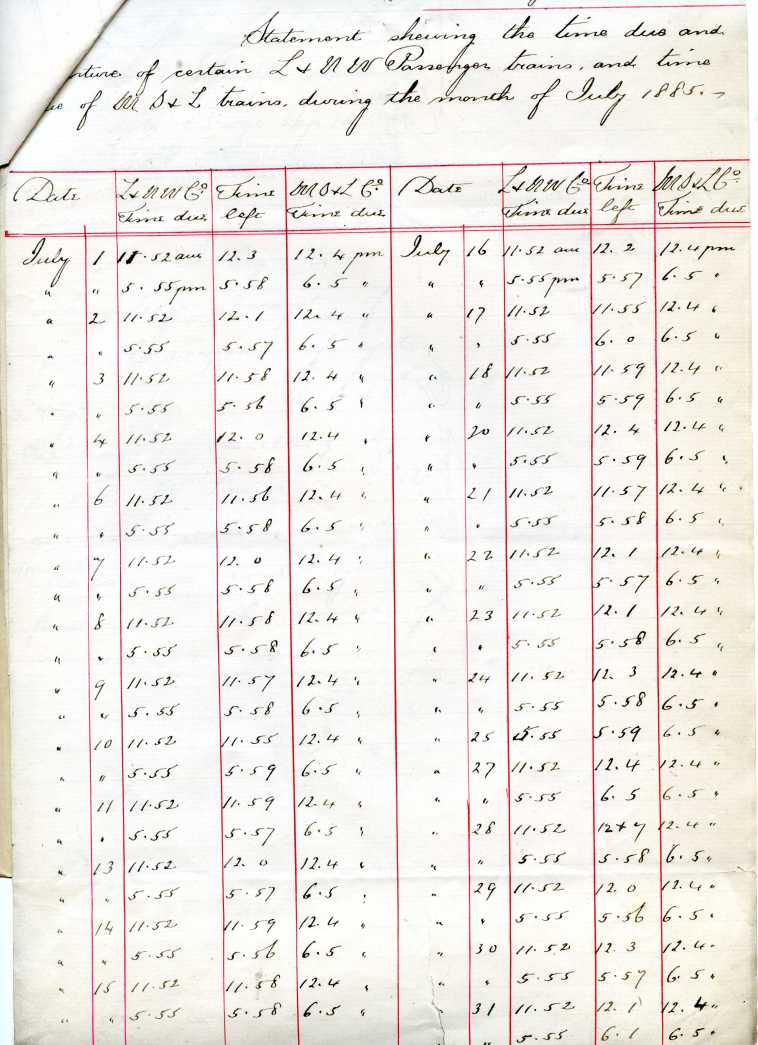 Statement shewing the time due and
of certain L & N W Passenger trains, and time
of M S & L trains, during the month of July 1885.
Date L & N W Co Time M S & L Co Date L & N W Co Time M S & L Co
Time due left Time due Time due left Time due
July 1 11.52 am 12.3 12.4 pm July 16 11.52 am 12.2 12.4 pm
" " 5.55 pm 5.58 6.5 " " " 5.55 pm 5.57 6.5 "
" 2 11.52 12.1 12.4 " " 17 11.52 11.55 12.4 "
" " 5.55 5.57 6.5 " " " 5.55 6.0 6.5 "
" 3 11.52 11.58 12.4 " " 18 11.52 11.59 12.4 "
" " 5.55 5.56 6.5 " " " 5.55 5.59 6.5 "
" 4 11.52 12.0 12.4 " " 20 11.52 12.4 12.4 "
" " 5.55 5.58 6.5 " " " 5.55 5.59 6.5 "
" 6 11.52 11.56 12.4 " " 21 11.52 11.57 12.4 "
" " 5.55 5.58 6.5 " " " 5.55 5.58 6.5 "
" 7 11.52 12.0 12.4 " " 22 11.52 12.1 12.4 "
" " 5.55 5.58 6.5 " " " 5.55 5.57 6.5 "
" 8 11.52 11.58 12.4 " " 23 11.52 12.1 12.4 "
" " 5.55 5.58 6.5 " " " 5.55 5.58 6.5 "
" 9 11.52 11.57 12.4 " " 24 11.52 12.3 12.4 "
" " 5.55 5.58 6.5 " " " 5.55 5.58 6.5 "
" 10 11.52 11.55 12.4 " " 25 5.55 5.59 6.5 "
" " 5.55 5.59 6.5 " " 27 11.52 12.4 12.4 "
" 11 11.52 11.59 12.4 " " " 5.55 6.5 6.5 "
" " 5.55 5.57 6.5 " " 28 11.52 12.7 12.4 "
" 13 11.52 12.0 12.4 " " " 5.55 5.58 6.5 "
" " 5.55 5.57 6.5 " " 29 11.52 12.0 12.4 "
" 14 11.52 11.59 12.4 " " " 5.55 5.56 6.5 "
" " 5.55 5.56 6.5 " " 30 11.52 12.3 12.4 "
" 15 11.52 11.58 12.4 " " " 5.55 5.57 6.5 "
" " 5.55 5.58 6.5 " " 31 11.52 12.1 12.4 "
" 5.55 6.1 6.5 "